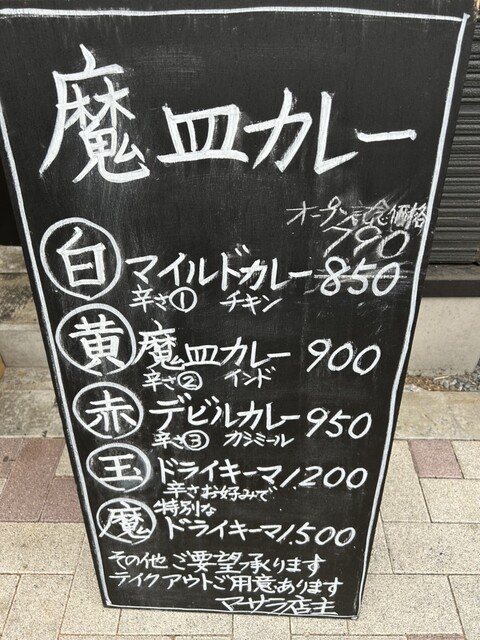 魔皿カレー
オープン記念価格
790
白 マイルドカレー 850
辛さ① チキン
黄 魔皿カレー 900
辛さ② インド
赤 デビルカレー 950
辛さ③ カシミール
玉 ドライキーマ 1.200
辛さお好みで
魔 特別な
ドライキーマ 1.500
その他ご要望承ります
テイクアウトご用意あります
マサラ店主